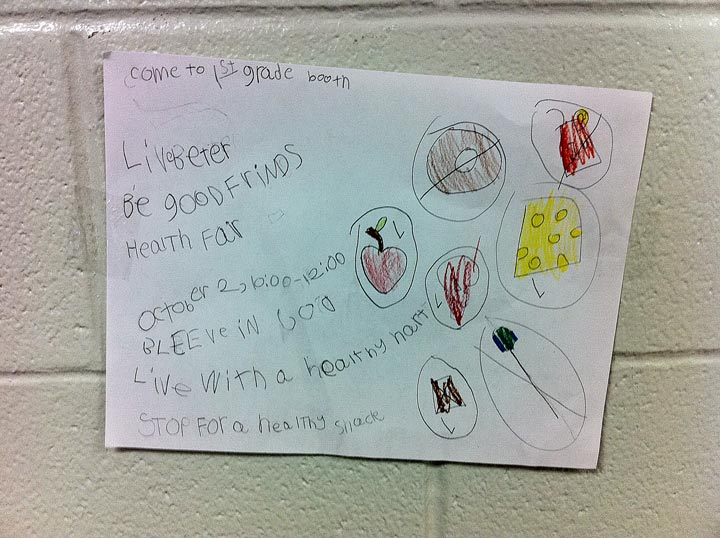 come to 1st grade booth
LiveBeter
Be good FrinDS
HealtH Fair
october 2, 10:00-12:00
BLEEve iN GOD
Live With a healthy hart
STOP FOR a healthy snack